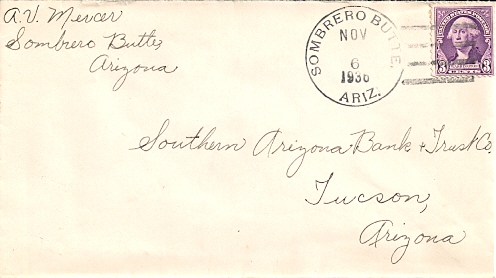 A.V. Mercer
Sombrero Butte,
Arizona
SOMBRERO BUTTE,
NOV
6
1936
ARIZ.
3 3
Southern Arizona Bank & Trust Co.
Tucson,
Arizona